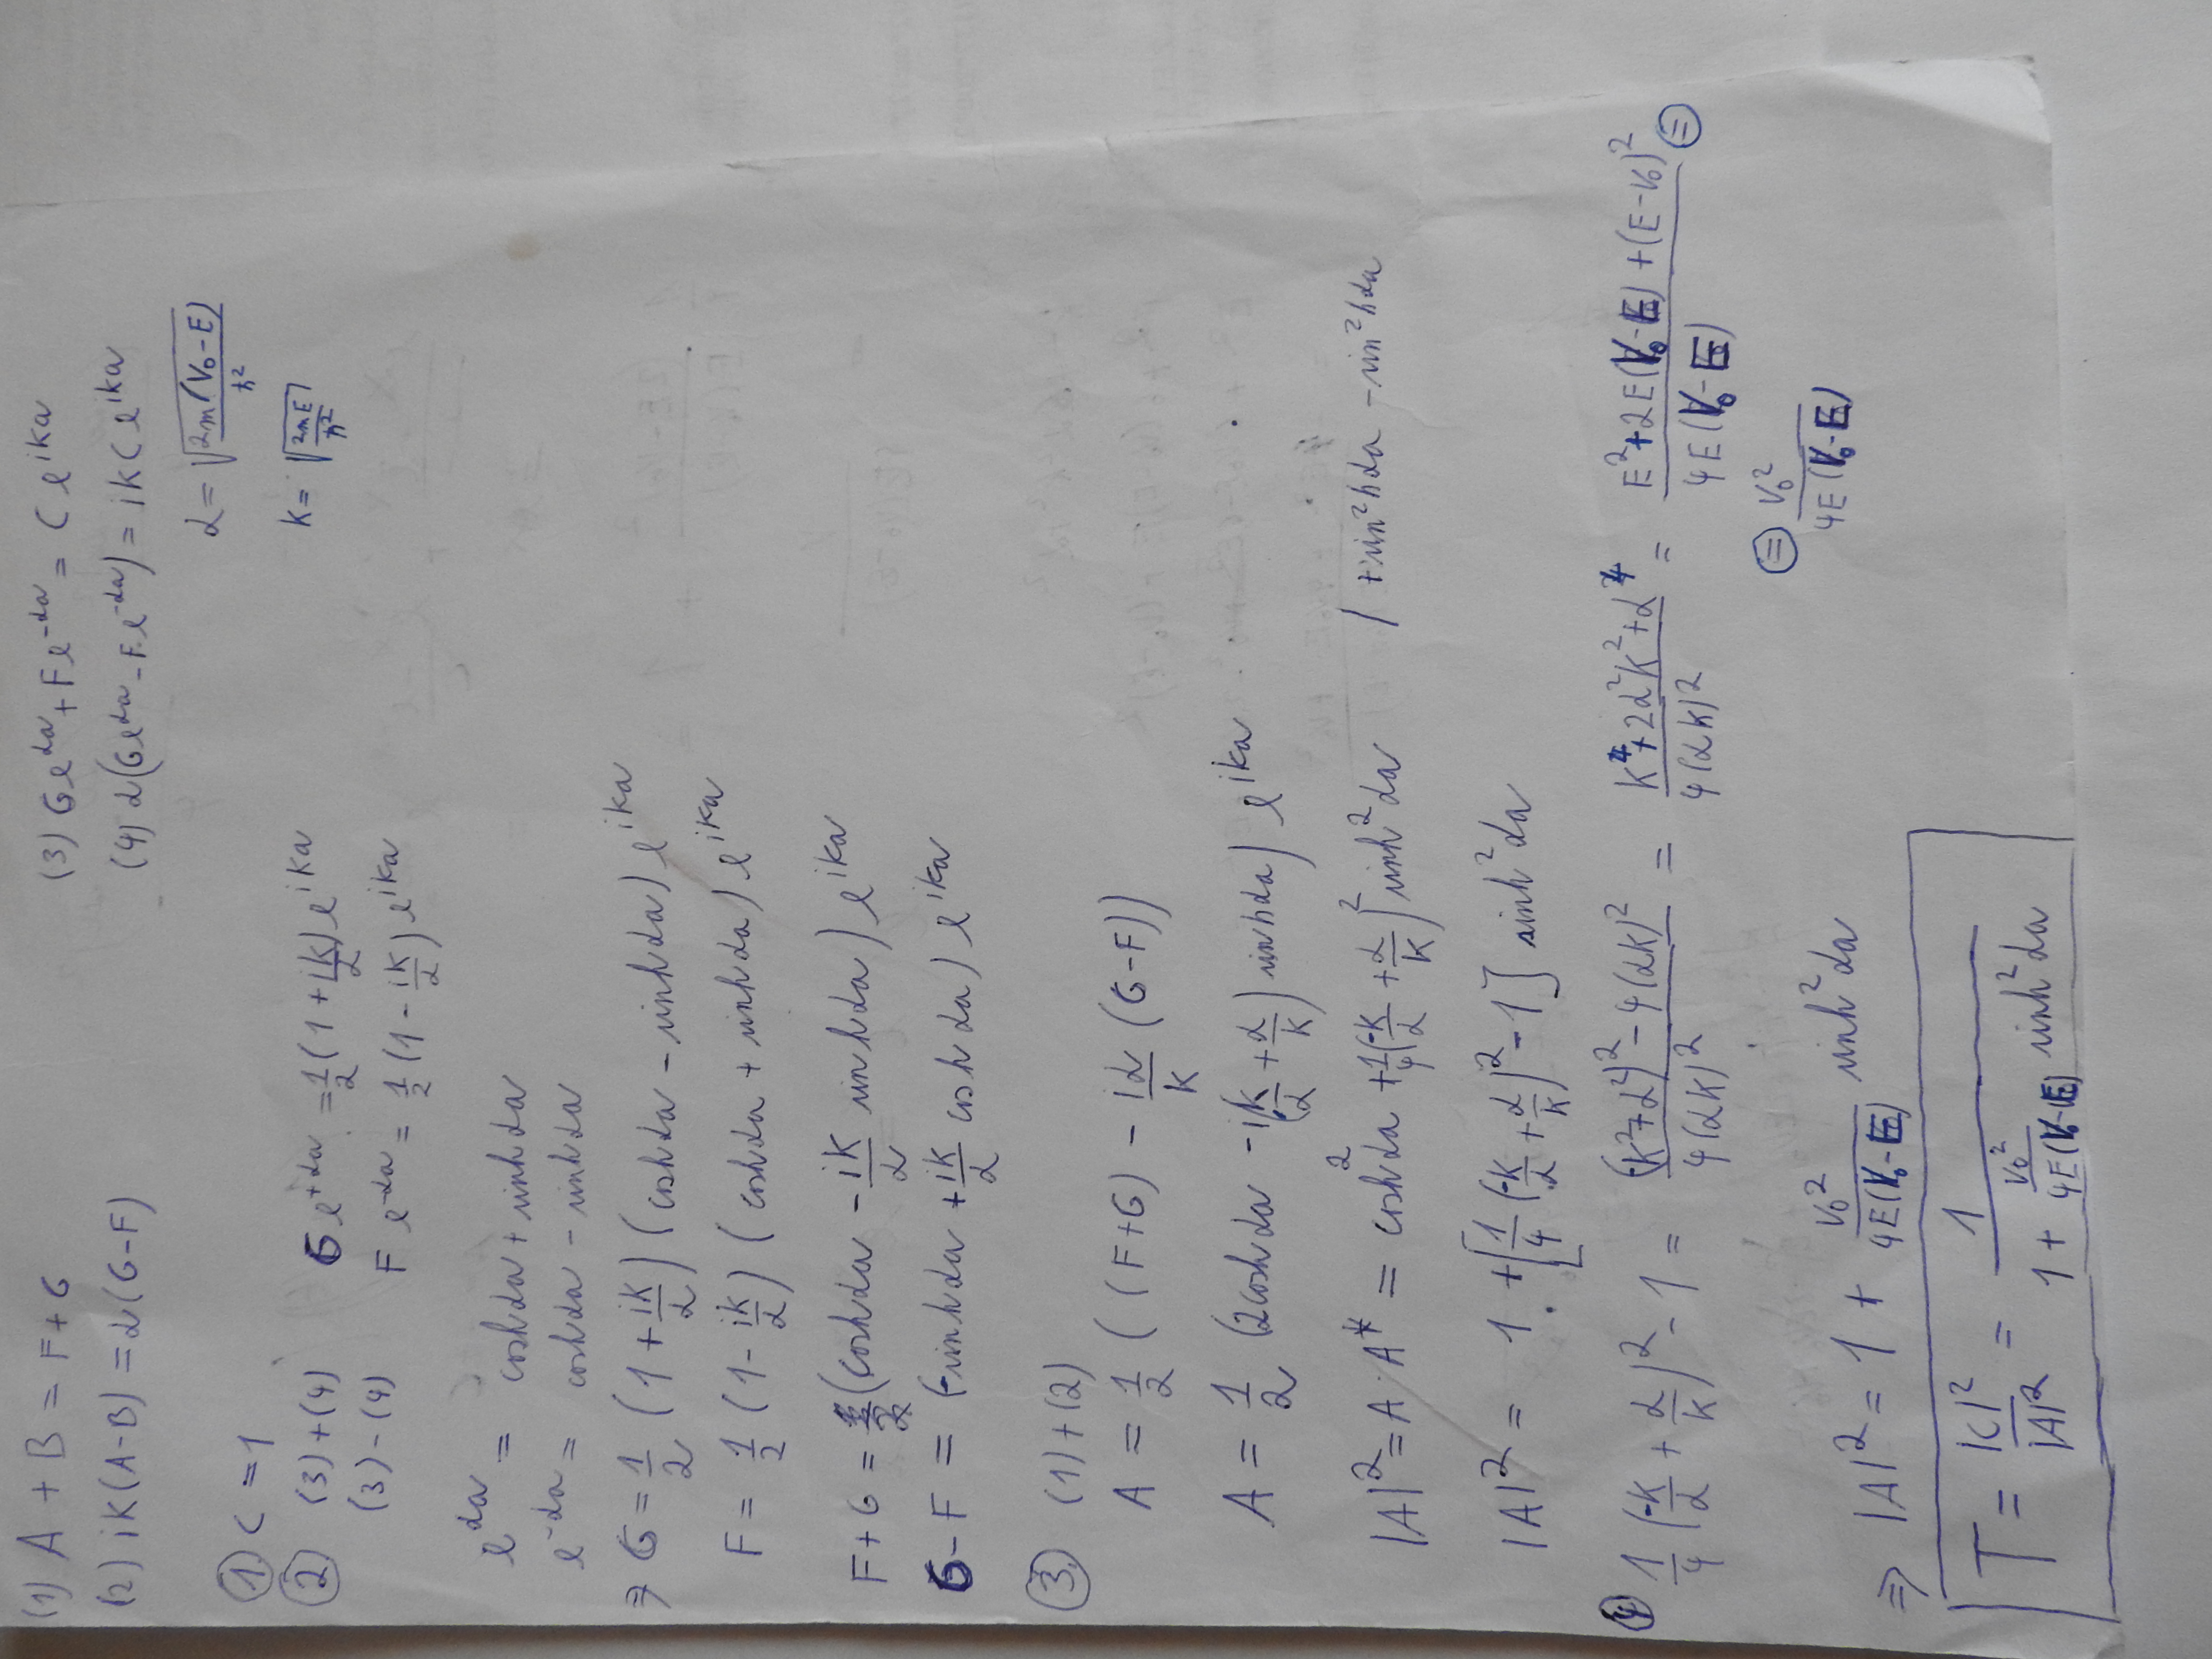 (1) A + B = F + G
(3) G e^{αa} + F e^{-αa} = C e^{ika}
(2) ik(A-B) = α(G-F)
(4) α(G e^{αa} - F e^{-αa}) = ikC e^{ika}
α = √(2m(V₀-E)/ħ²)
① C = 1
k = √(2mE/ħ²)
② (3)+(4) G e^{+αa} = 1/2 (1 + ik/α) e^{ika}
(3)-(4) F e^{-αa} = 1/2 (1 - ik/α) e^{ika}
e^{αa} = cosh αa + sinh αa
e^{-αa} = cosh αa - sinh αa
⇒ G = 1/2 (1 + ik/α) (cosh αa - sinh αa) e^{ika}
F = 1/2 (1 - ik/α) (cosh αa + sinh αa) e^{ika}
F + G = (cosh αa - ik/α sinh αa) e^{ika}
G - F = (-sinh αa + ik/α cosh αa) e^{ika}
③. (1)+(2)
A = 1/2 ((F+G) - iα/k (G-F))
A = 1/2 (2cosh αa - i(k/α + α/k) sinh αa) e^{ika}
|A|² = A · A* = cosh² αa + 1/4 (-k/α + α/k)² sinh² αa / + sin²h αa - sin²h αa
|A|² = 1 + [1/4 (-k/α + α/k)² - 1] sinh² αa
④ 1/4 (-k/α + α/k)² - 1 = ((-k²+α²)² - 4(αk)²)/(4(αk)²) = (k⁴ + 2α²k² + α⁴)/(4(αk)²) = (E² + 2E(V₀-E) + (E-V₀)²)/(4E(V₀-E)) ⊜
⊜ V₀²/(4E(V₀-E))
⇒ |A|² = 1 + V₀²/(4E(V₀-E)) sinh² αa
T = |C|²/|A|² = 1/(1 + V₀²/(4E(V₀-E)) sinh² αa)